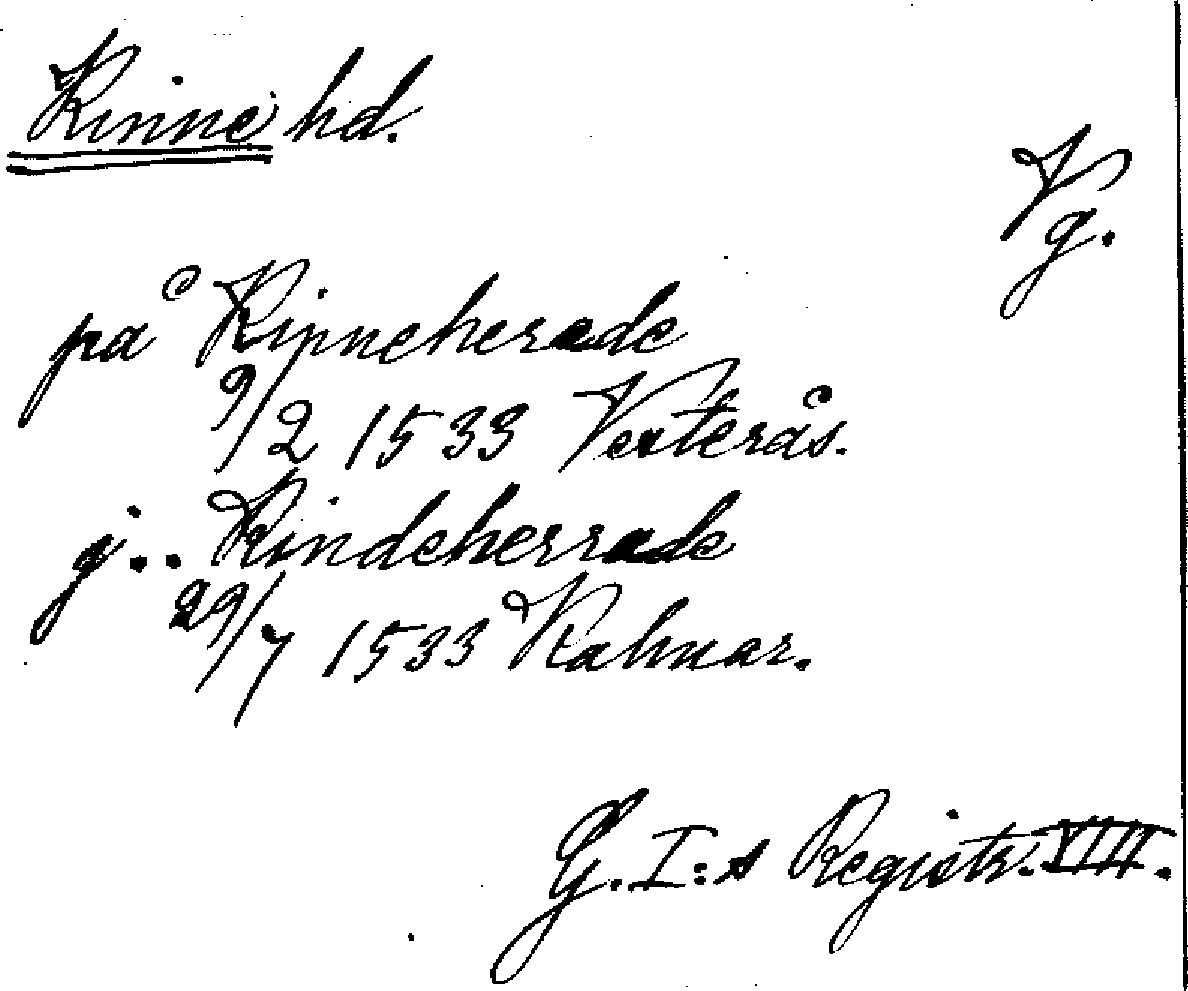 Kinne hd.
Vg.
på Kinneherade
9/2 1533 Vesterås.
j.. Kindeherrade
29/7 1533 Kalmar.
G. I:s Registr. VIII.